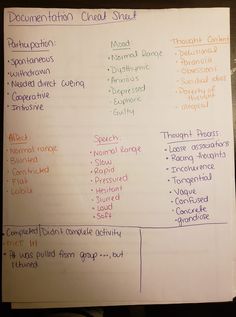 Documentation Cheat Sheet
Participation:
• Spontaneous
• Withdrawn
• Needed direct cueing
• Cooperative
• Intrusive
Mood
• Normal Range
• Dysthymic
• Anxious
• Depressed
• Euphoric
• Guilty
Thought Content
• Delusional
• Paranoia
• Obsessions
• Suicidal ideas
• Poverty of thought
Affect:
• Normal range
• Blunted
• Constricted
• Flat
• Labile
Speech:
• Normal Range
• Slow
• Rapid
• Pressured
• Hesitant
• Slurred
• Loud
• Soft
Thought Process
• Loose associations
• Racing thoughts
• Incoherence
• Tangential
• Vague
• Confused
• Concrete
• grandiose
• Completed/Didn't complete activity
• Pt was pulled from group ..., but
returned